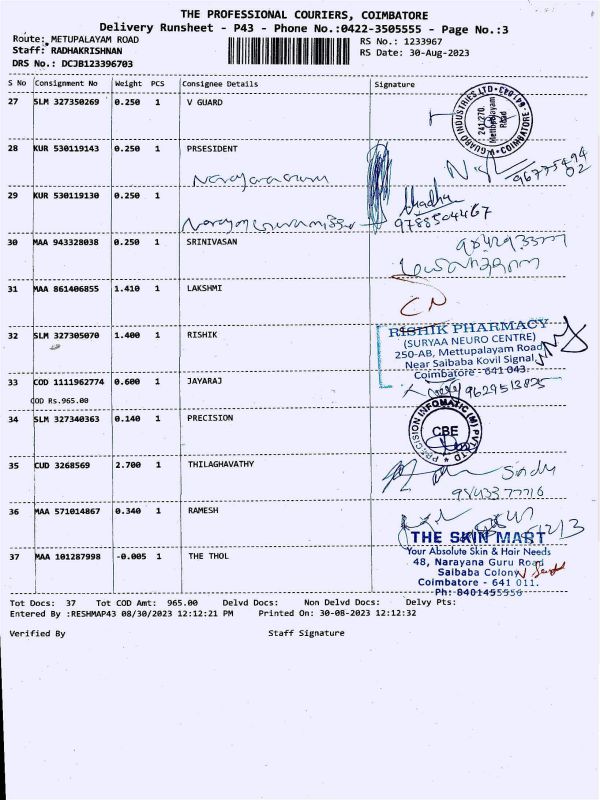 THE PROFESSIONAL COURIERS, COIMBATORE
Delivery Runsheet - P43 - Phone No.:0422-3505555 - Page No.:3
Route: METUPALAYAM ROAD
Staff: RADHAKRISHNAN
DRS No.: DCJB123396703
RS No.: 1233967
RS Date: 30-Aug-2023
S No Consignment No Weight PCS Consignee Details Signature
27 SLM 327350269 0.250 1 V GUARD
V GUARD INDUSTRIES LTD
241/270, Mettupalayam Road
COIMBATORE - 641 043
28 KUR 530119143 0.250 1 PRSESIDENT
29 KUR 530119130 0.250 1
9788504467
30 MAA 943328038 0.250 1 SRINIVASAN
31 MAA 861406855 1.410 1 LAKSHMI
CN
32 SLM 327305070 1.400 1 RISHIK
RISHIK PHARMACY
(SURYAA NEURO CENTRE)
250-AB, Mettupalayam Road
Near Saibaba Kovil Signal,
Coimbatore - 641 043.
33 COD 1111962774 0.600 1 JAYARAJ
9629513825
COD Rs.965.00
34 SLM 327340363 0.140 1 PRECISION
PRECISION INFOMATIC (M) PVT LTD
CBE
35 CUD 3268569 2.700 1 THILAGHAVATHY
36 MAA 571014867 0.340 1 RAMESH
37 MAA 101287998 -0.005 1 THE THOL
THE SKIN MART
Your Absolute Skin & Hair Needs
48, Narayana Guru Road
Saibaba Colony
Coimbatore - 641 011.
Ph: 8401455556
Tot Docs: 37 Tot COD Amt: 965.00 Delvd Docs: Non Delvd Docs: Delvy Pts:
Entered By :RESHMAP43 08/30/2023 12:12:21 PM Printed On: 30-08-2023 12:12:32
Verified By Staff Signature